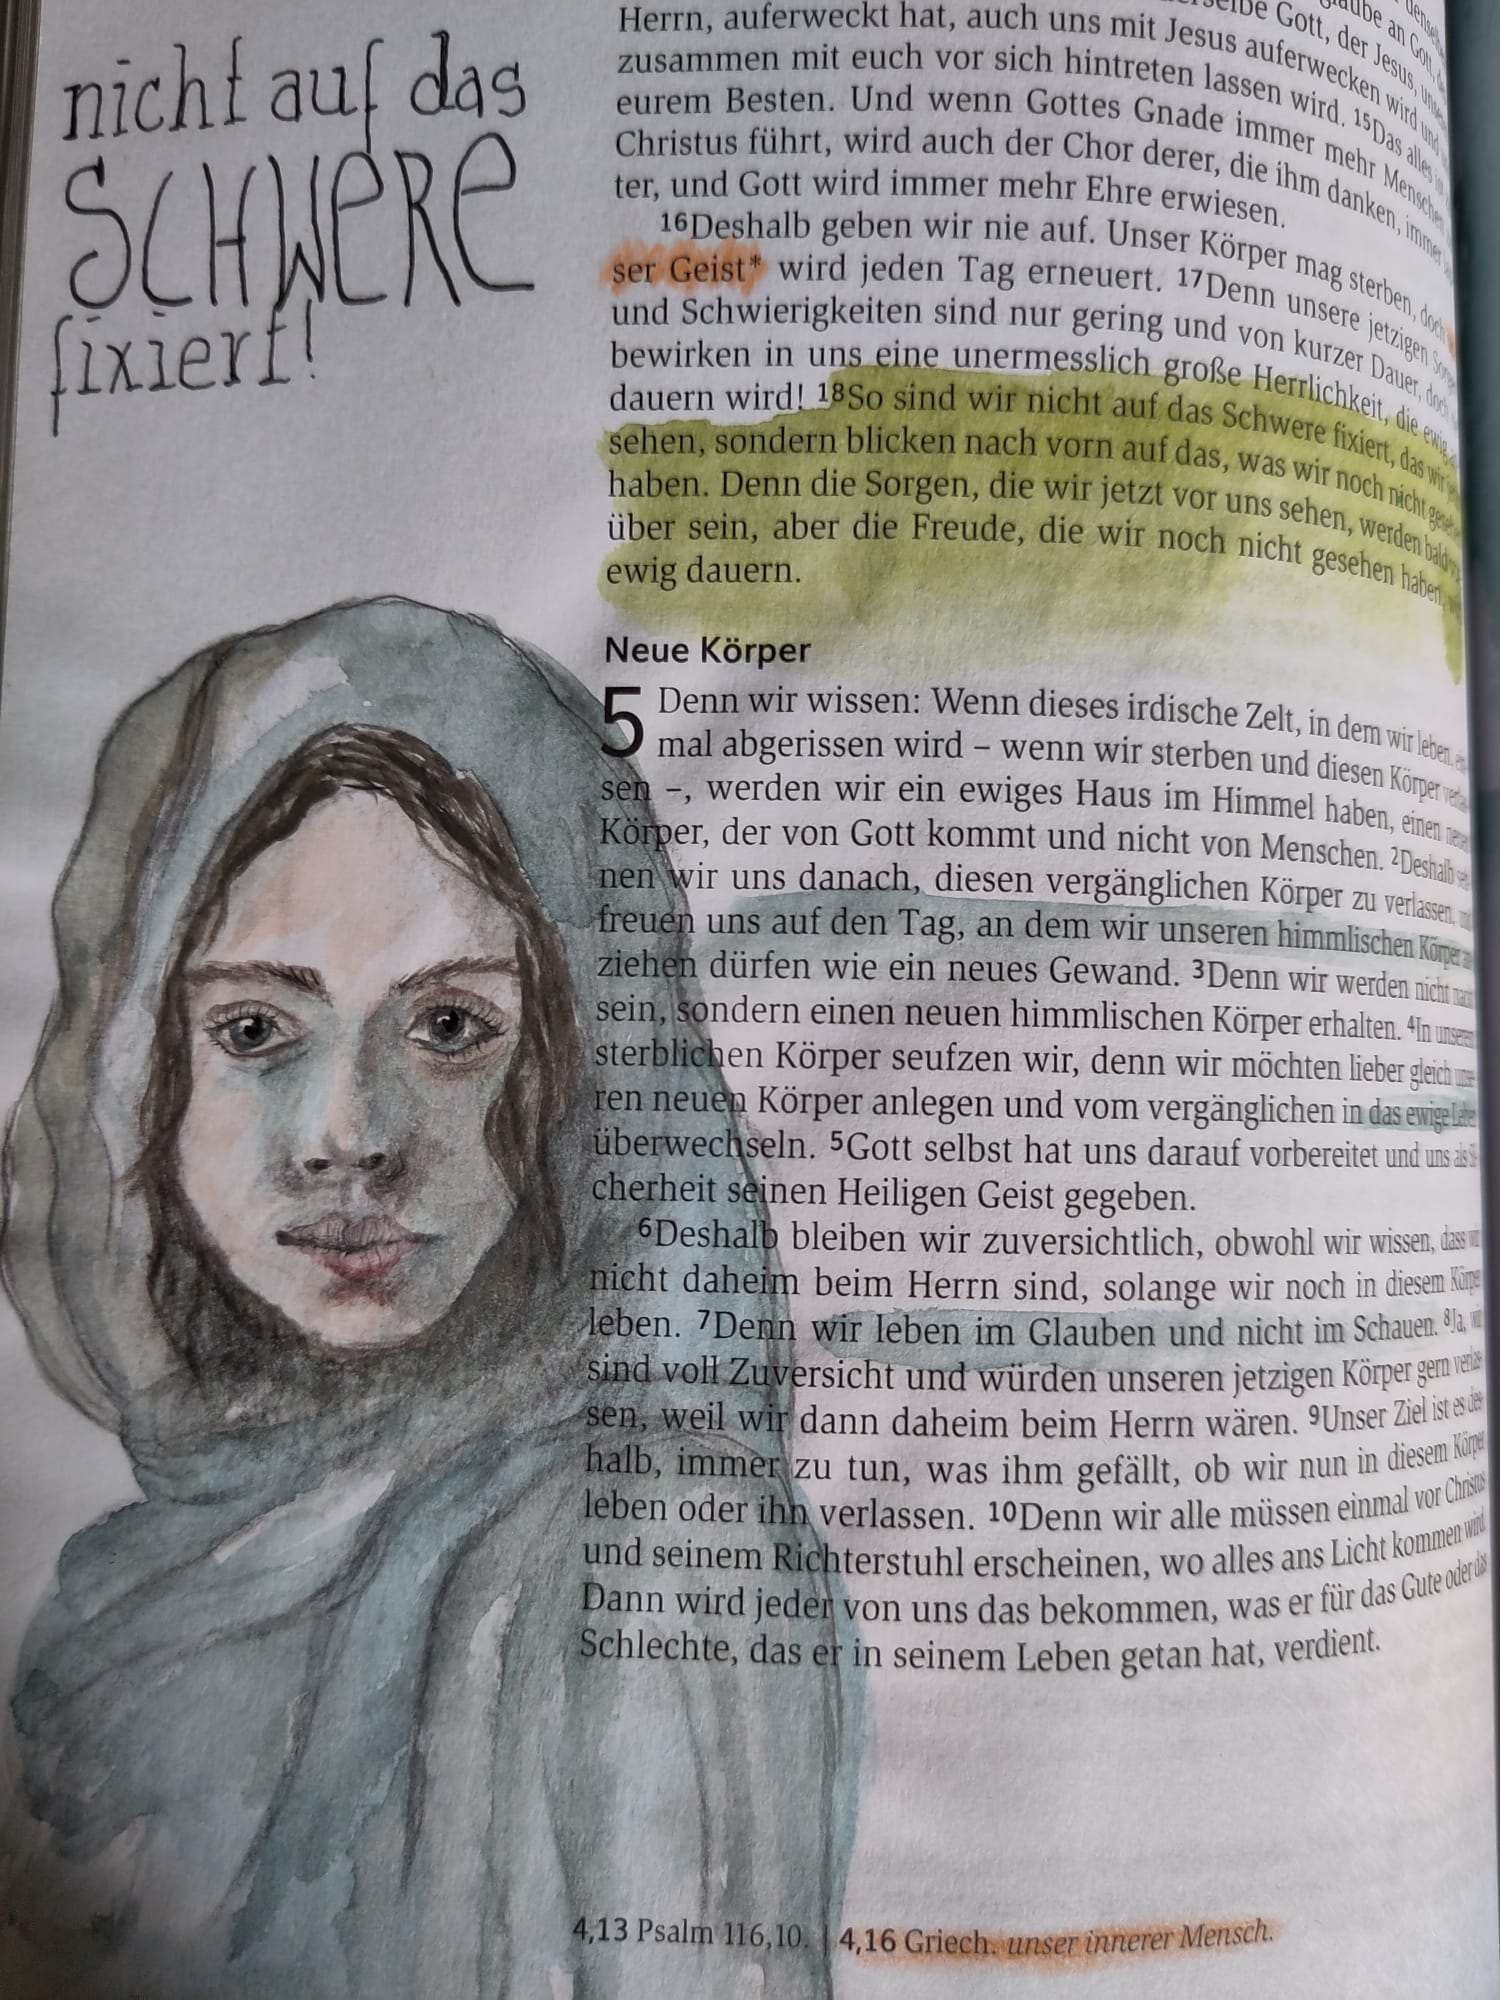 nicht auf das
SCHWERE
fixiert!
selbe Gott, der Jesus,
Herrn, auferweckt hat, auch uns mit Jesus auferwecken wird und
zusammen mit euch vor sich hintreten lassen wird. 15Das alles
eurem Besten. Und wenn Gottes Gnade immer mehr Menschen
Christus führt, wird auch der Chor derer, die ihm danken, immer
ter, und Gott wird immer mehr Ehre erwiesen.
16Deshalb geben wir nie auf. Unser Körper mag sterben, doch
ser Geist* wird jeden Tag erneuert. 17Denn unsere jetzigen
und Schwierigkeiten sind nur gering und von kurzer Dauer, doch
bewirken in uns eine unermesslich große Herrlichkeit, die ewig
dauern wird! 18So sind wir nicht auf das Schwere fixiert, das wir
sehen, sondern blicken nach vorn auf das, was wir noch nicht
haben. Denn die Sorgen, die wir jetzt vor uns sehen, werden bald
über sein, aber die Freude, die wir noch nicht gesehen haben,
ewig dauern.
Neue Körper
5 Denn wir wissen: Wenn dieses irdische Zelt, in dem wir leben,
mal abgerissen wird – wenn wir sterben und diesen Körper
sen –, werden wir ein ewiges Haus im Himmel haben, einen
Körper, der von Gott kommt und nicht von Menschen. 2Deshalb
nen wir uns danach, diesen vergänglichen Körper zu verlassen,
freuen uns auf den Tag, an dem wir unseren himmlischen Körper
ziehen dürfen wie ein neues Gewand. 3Denn wir werden nicht
sein, sondern einen neuen himmlischen Körper erhalten. 4In
sterblichen Körper seufzen wir, denn wir möchten lieber gleich
ren neuen Körper anlegen und vom vergänglichen in das ewige
überwechseln. 5Gott selbst hat uns darauf vorbereitet und uns als
cherheit seinen Heiligen Geist gegeben.
6Deshalb bleiben wir zuversichtlich, obwohl wir wissen, dass
nicht daheim beim Herrn sind, solange wir noch in diesem Körper
leben. 7Denn wir leben im Glauben und nicht im Schauen. 8Ja,
sind voll Zuversicht und würden unseren jetzigen Körper gern
sen, weil wir dann daheim beim Herrn wären. 9Unser Ziel ist es
halb, immer zu tun, was ihm gefällt, ob wir nun in diesem Körper
leben oder ihn verlassen. 10Denn wir alle müssen einmal vor Christus
und seinem Richterstuhl erscheinen, wo alles ans Licht kommen wird.
Dann wird jeder von uns das bekommen, was er für das Gute oder das
Schlechte, das er in seinem Leben getan hat, verdient.
4,13 Psalm 116,10. | 4,16 Griech. unser innerer Mensch.